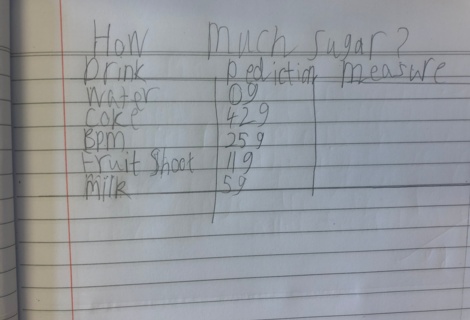 How much sugar?
Drink Pediction measure
Water 0g
coke 42g
Bpm 25g
Fruit Shoot 11g
milk 5g